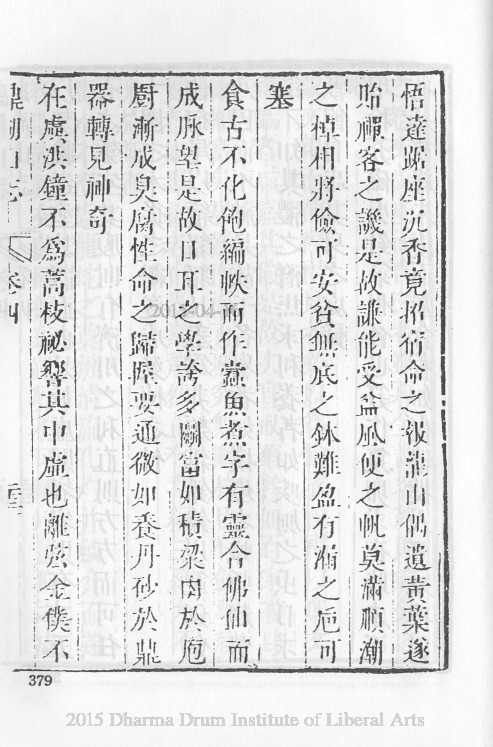 悟達踞座沉香竟招宿命之報龍山偶遺黃葉遂
貽禪客之譏是故謙能受益風便之帆莫滿順潮
之棹相將儉可安貧無底之鉢難盈有漏之巵可
塞
食古不化徇編帙而作蠹魚煮字有靈合佛仙而
成脉望是故口耳之學誇多鬬富如積梁肉於庖
厨漸成臭腐性命之歸握要通微如養丹砂於鼎
器轉見神奇
在虡洪鐘不為蒿枝祕響其中虛也離弦金僕不
鼎湖山志 卷四
379
2015 Dharma Drum Institute of Liberal Arts